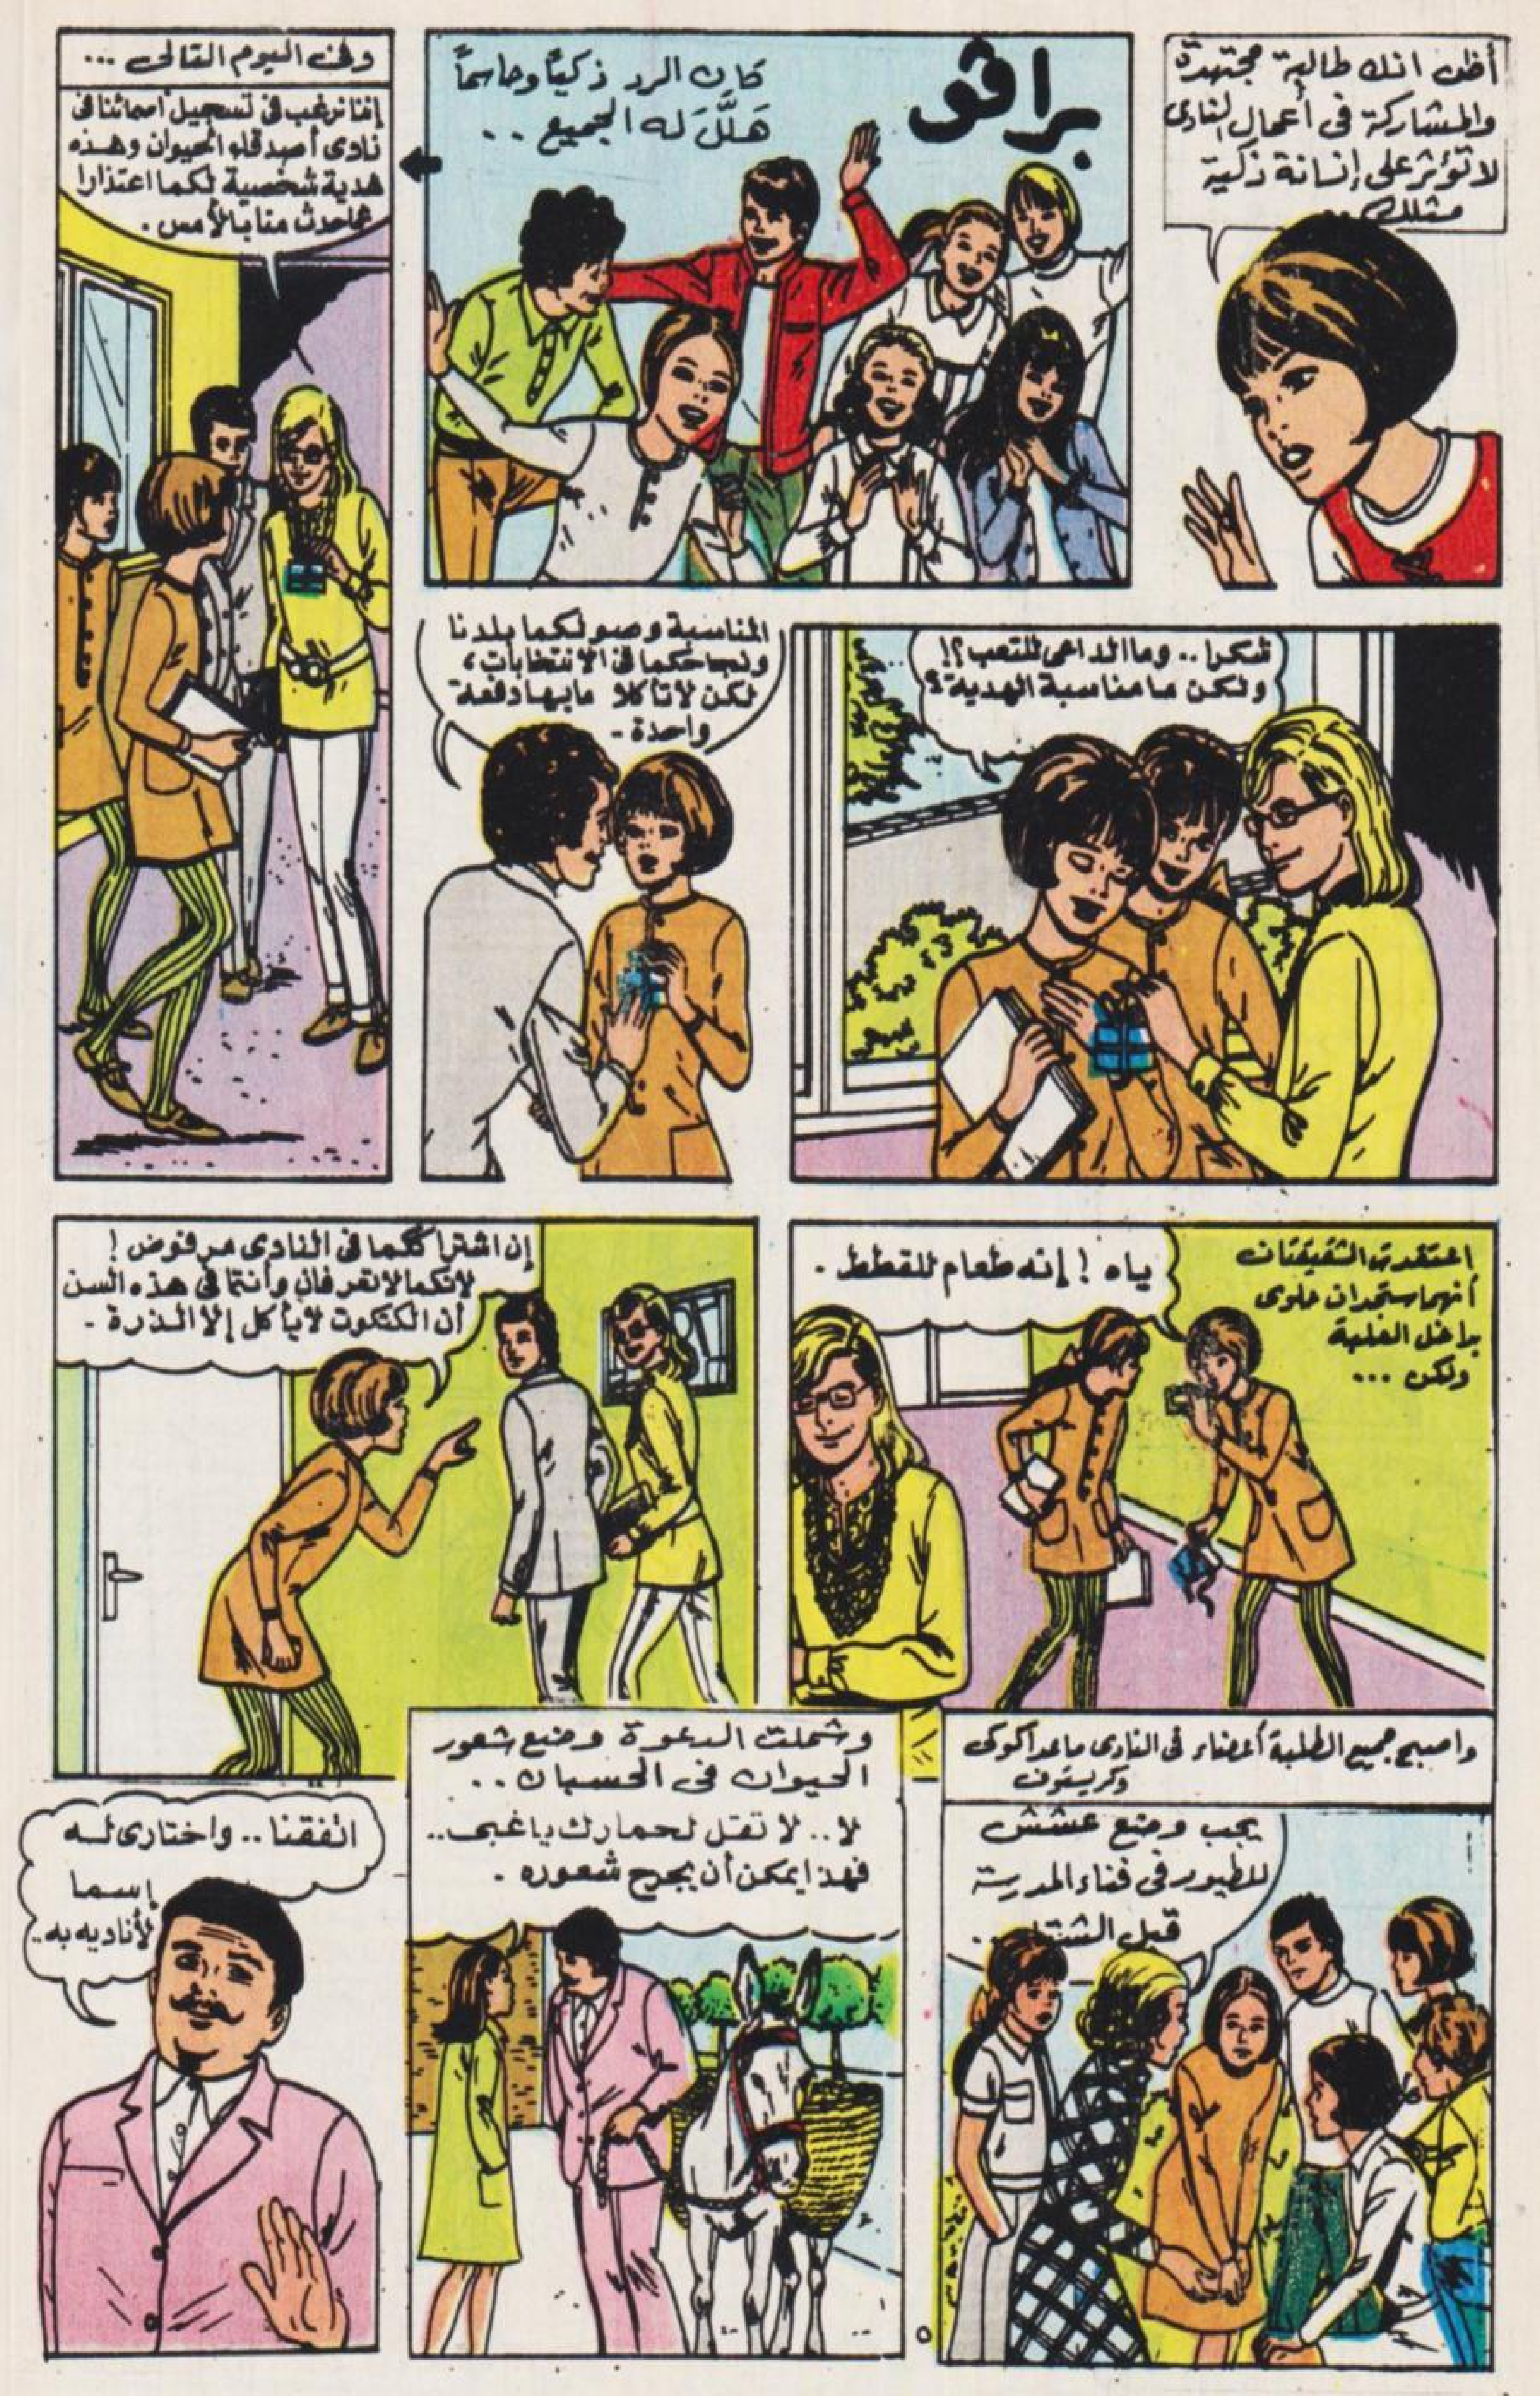 أظن انك طالبة مجتهدة
والمشاركة في أعمال النادى
لا تؤثر على إنسانة ذكية
مثلك ..
براڤو
كان الرد ذكياً وحاسماً
هَلَّلَ له الجميع ..
وفى اليوم التالى ...
إننا نرغب فى تسجيل أسمائنا فى
نادى أصدقاء الحيوان وهذه
هدية شخصية لكما اعتذارا
عما حدث منا بالأمس .
شكرا .. وما الداعى للتعب ؟!
ولكن ما مناسبة الهدية ؟
المناسبة وصولكما بلدنا
ونجاحكما فى الانتخابات ،
لكن لا تأكلا ما بها دفعة
واحدة -
اعتقدت الشقيقتان
أنهما ستجدان حلوى
بداخل العلبة
ولكن ...
ياه ! إنه طعام للقطط .
إن اشتراككما فى النادى مرفوض !
لانكما لا تعرفان وأنتما فى هذه السن
أن الكتكوت لا يأكل إلا الذرة -
واصبح جميع الطلبة أعضاء فى النادى ماعدا كوكى
وكريستون
يجب وضع عشش
للطيور فى فناء المدرسة
قبل الشتاء ..
وشملت الدعوة وضع شعور
الحيوان فى الحسبان ..
لا .. لا تقل لحمارك يا غبى ..
فهذا يمكن أن يجرح شعوره .
اتفقنا .. واختارى له
إسما
لأناديه به ..
٥